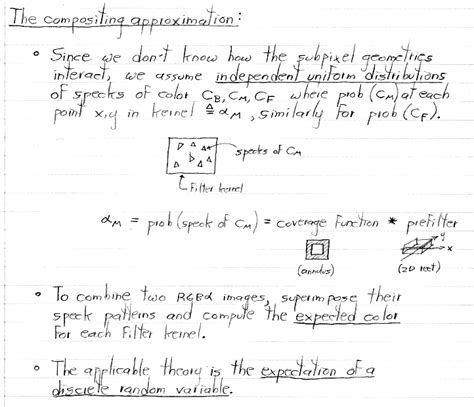 The compositing approximation:
• Since we don't know how the subpixel geometries
interact, we assume independent uniform distributions
of specks of color C_B, C_M, C_F where prob (C_M) at each
point x,y in kernel ≜ α_M, similarly for prob (C_F).
specks of C_M
Filter kernel
α_M = prob (speck of C_M) = coverage function * prefilter
(annulus)
y
x
(2D rect)
• To combine two RGBα images, superimpose their
speck patterns and compute the expected color
for each filter kernel.
• The applicable theory is the expectation of a
discrete random variable.